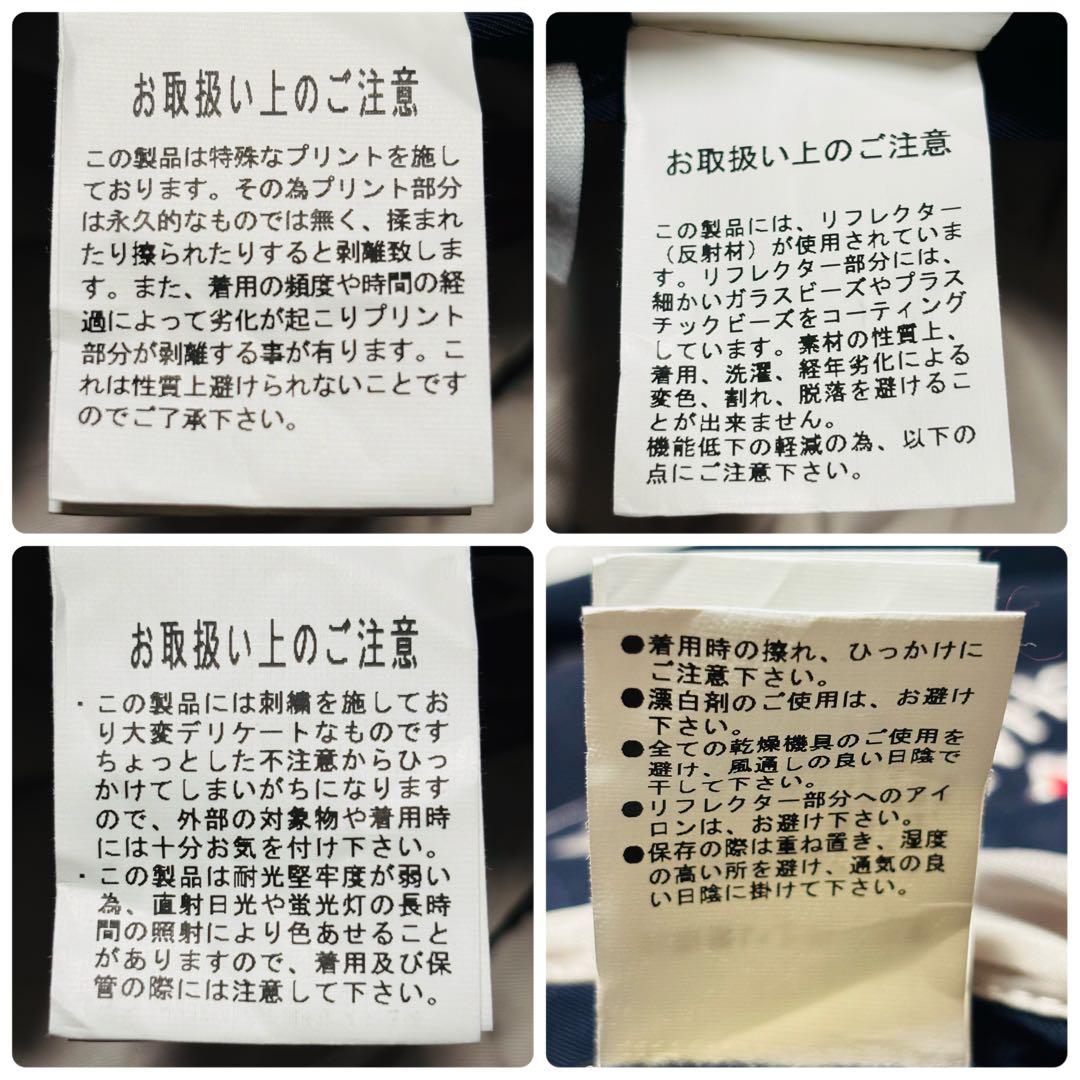 お取扱い上のご注意
この製品は特殊なプリントを施し
ております。その為プリント部分
は永久的なものでは無く、揉まれ
たり擦られたりすると剥離致しま
す。また、着用の頻度や時間の経
過によって劣化が起こりプリント
部分が剥離する事が有ります。こ
れは性質上避けられないことです
のでご了承下さい。
お取扱い上のご注意
この製品には、リフレクター
（反射材）が使用されていま
す。リフレクター部分には、
細かいガラスビーズやプラス
チックビーズをコーティング
しています。素材の性質上、
着用、洗濯、経年劣化による
変色、割れ、脱落を避けるこ
とが出来ません。
機能低下の軽減の為、以下の
点にご注意下さい。
お取扱い上のご注意
・この製品には刺繍を施してお
り大変デリケートなものです
ちょっとした不注意からひっ
かけてしまいがちになります
ので、外部の対象物や着用時
には十分お気を付け下さい。
・この製品は耐光堅牢度が弱い
為、直射日光や蛍光灯の長時
間の照射により色あせること
がありますので、着用及び保
管の際には注意して下さい。
●着用時の擦れ、ひっかけに
ご注意下さい。
●漂白剤のご使用は、お避け
下さい。
●全ての乾燥機具のご使用を
避け、風通しの良い日陰で
干して下さい。
●リフレクター部分へのアイ
ロンは、お避け下さい。
●保存の際は重ね置き、湿度
の高い所を避け、通気の良
い日陰に掛けて下さい。